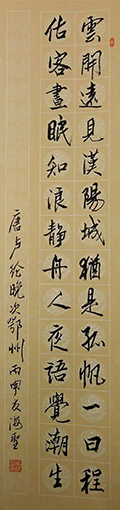 雲開遠見漢陽城猶是孤帆一日程
估客晝眠知浪静舟人夜語覺潮生
唐卢纶晚次鄂州丙申友海聖